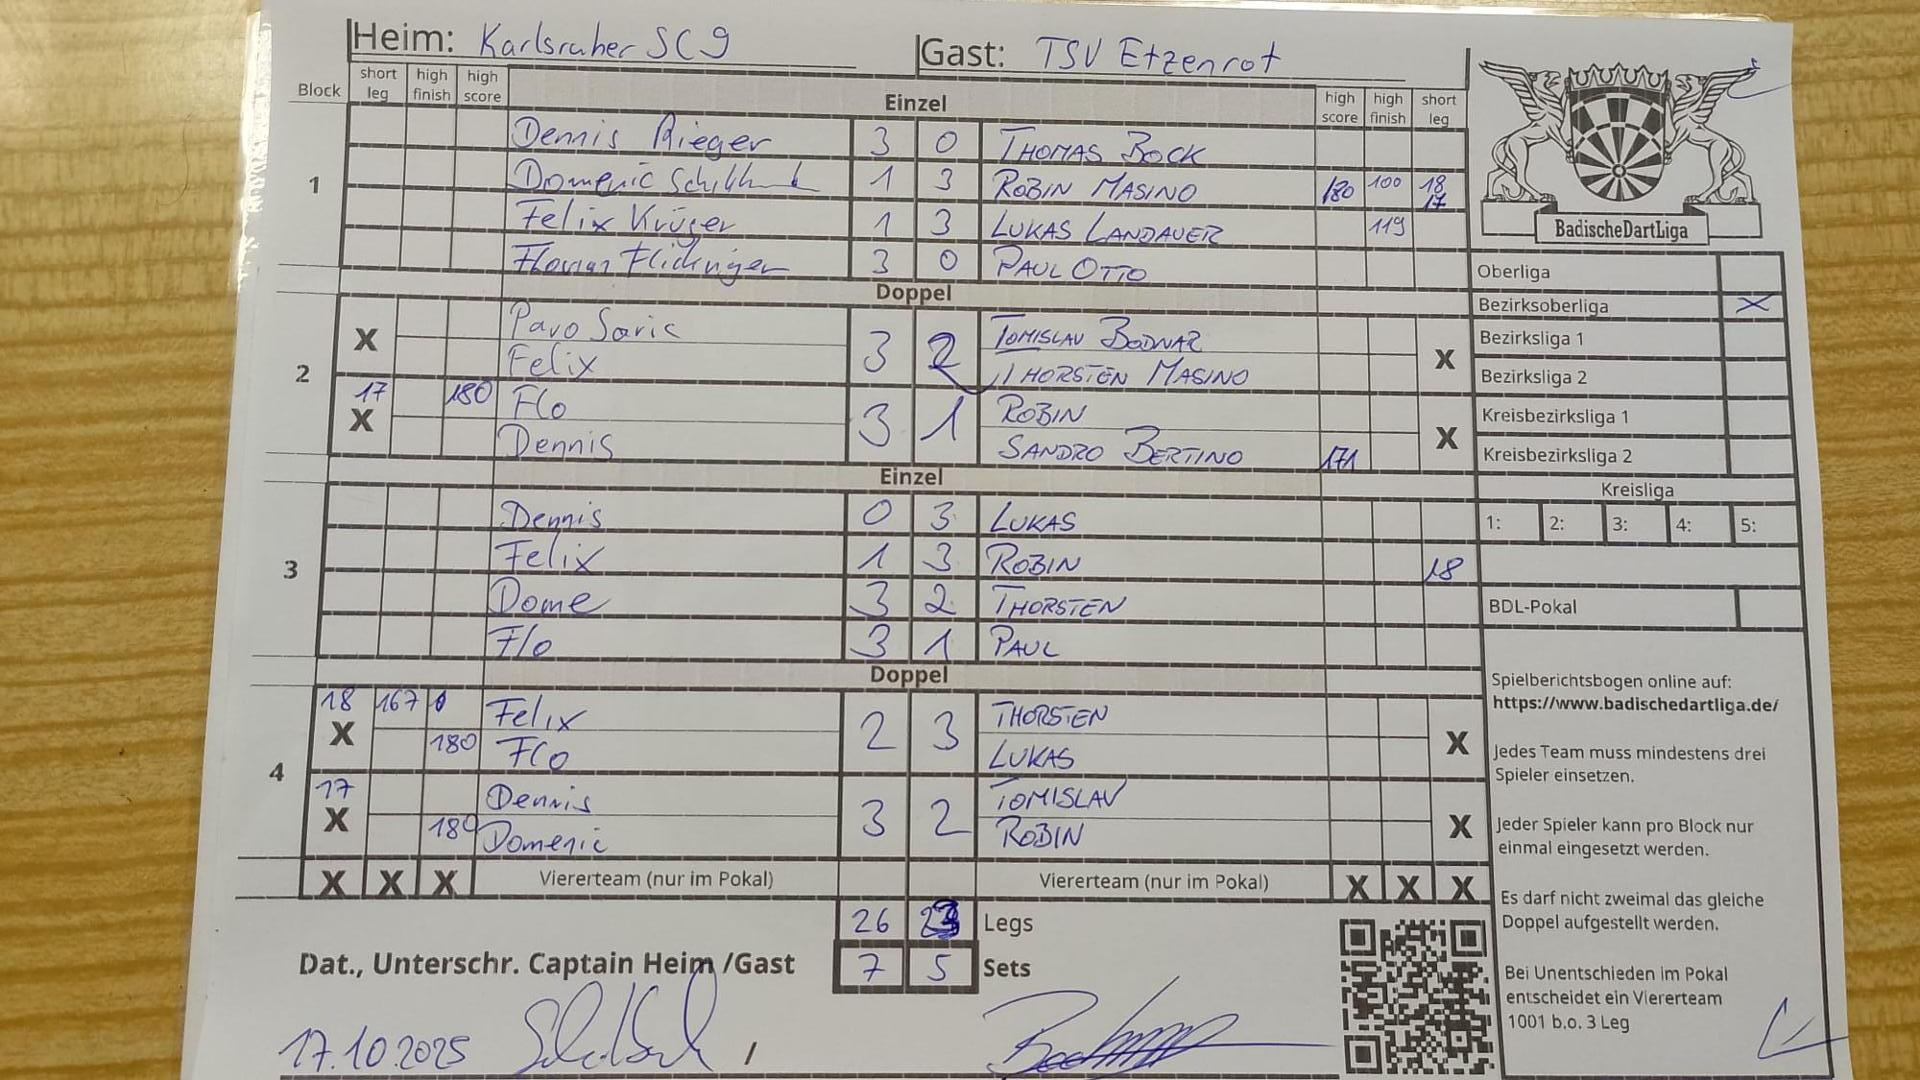 Heim: Karlsruher SC 9 Gast: TSV Etzenrot
Block short leg high finish high score Einzel high score high finish short leg
1
Dennis Rieger 3 0 THOMAS BOCK
Domenic 1 3 ROBIN MASINO 180 100 18 17
Felix Krüger 1 3 LUKAS LANDAUER 119
Florian Flickinger 3 0 PAUL OTTO
Doppel
2
X Pavo Saric 3 2 TOMISLAV BODNAR X
Felix THORSTEN MASINO
17 X 180 Flo 3 1 ROBIN X
Dennis SANDRO BERTINO 171
Einzel
3
Dennis 0 3 LUKAS
Felix 1 3 ROBIN 18
Dome 3 2 THORSTEN
Flo 3 1 PAUL
Doppel
4
18 X 167 Felix 2 3 THORSTEN X
180 Flo LUKAS
17 X Dennis 3 2 TOMISLAV X
180 Domenic ROBIN
X X X Viererteam (nur im Pokal) Viererteam (nur im Pokal) X X X
26 23 Legs
Dat., Unterschr. Captain Heim /Gast 7 5 Sets
17.10.2025 /
BadischeDartLiga
Oberliga
Bezirksoberliga X
Bezirksliga 1
Bezirksliga 2
Kreisbezirksliga 1
Kreisbezirksliga 2
Kreisliga
1: 2: 3: 4: 5:
BDL-Pokal
Spielberichtsbogen online auf:
https://www.badischedartliga.de/
Jedes Team muss mindestens drei
Spieler einsetzen.
Jeder Spieler kann pro Block nur
einmal eingesetzt werden.
Es darf nicht zweimal das gleiche
Doppel aufgestellt werden.
Bei Unentschieden im Pokal
entscheidet ein Viererteam
1001 b.o. 3 Leg